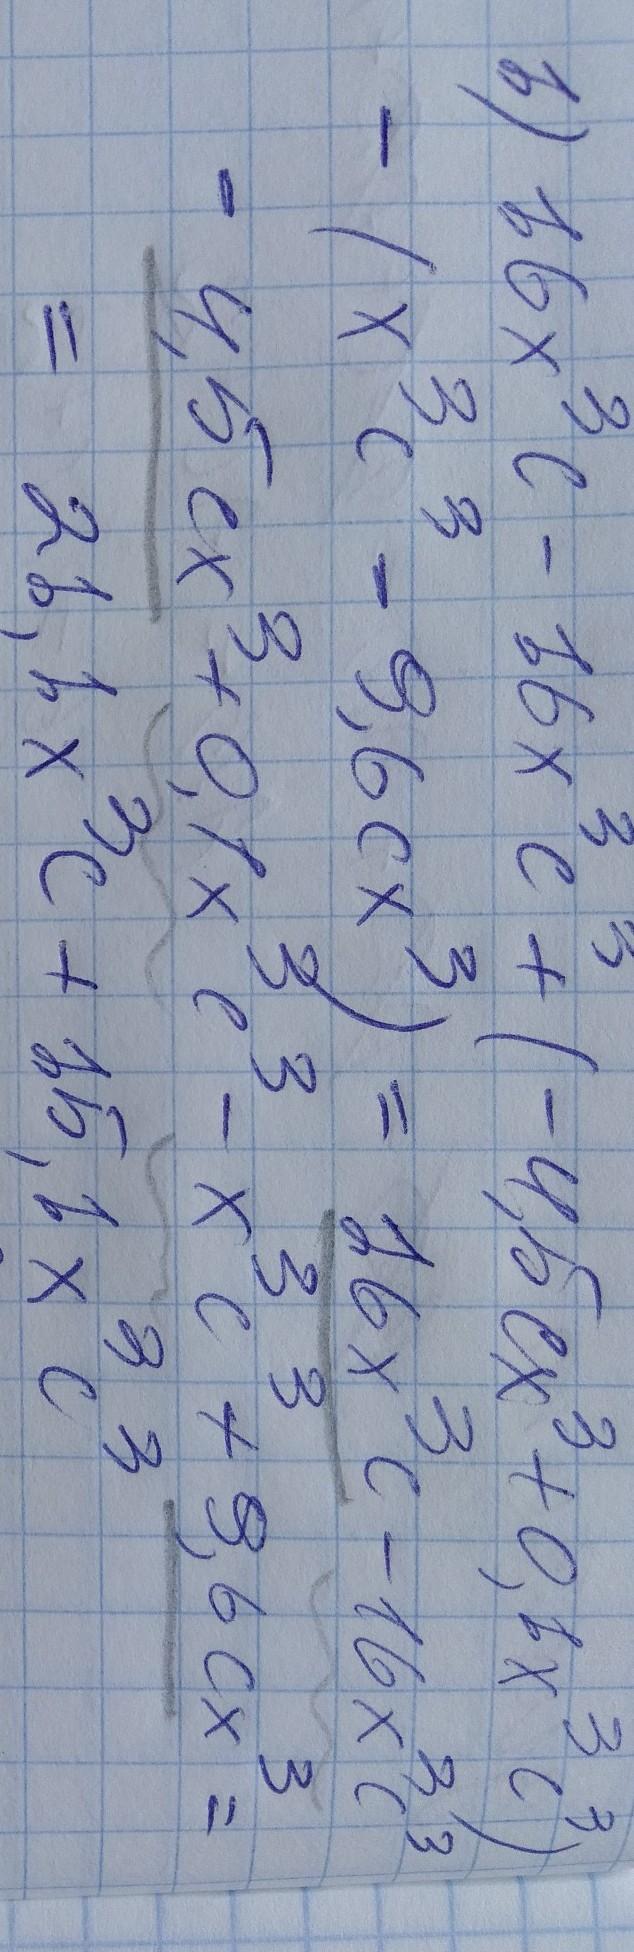 1) 16x³c - 16x³c³ + (-4,5cx³ + 0,1x³c³)
- (x³c³ - 9,6cx³) = 16x³c - 16x³c³
- 4,5cx³ + 0,1x³c³ - x³c³ + 9,6cx³ =
= 21,1x³c + 15,1x³c³